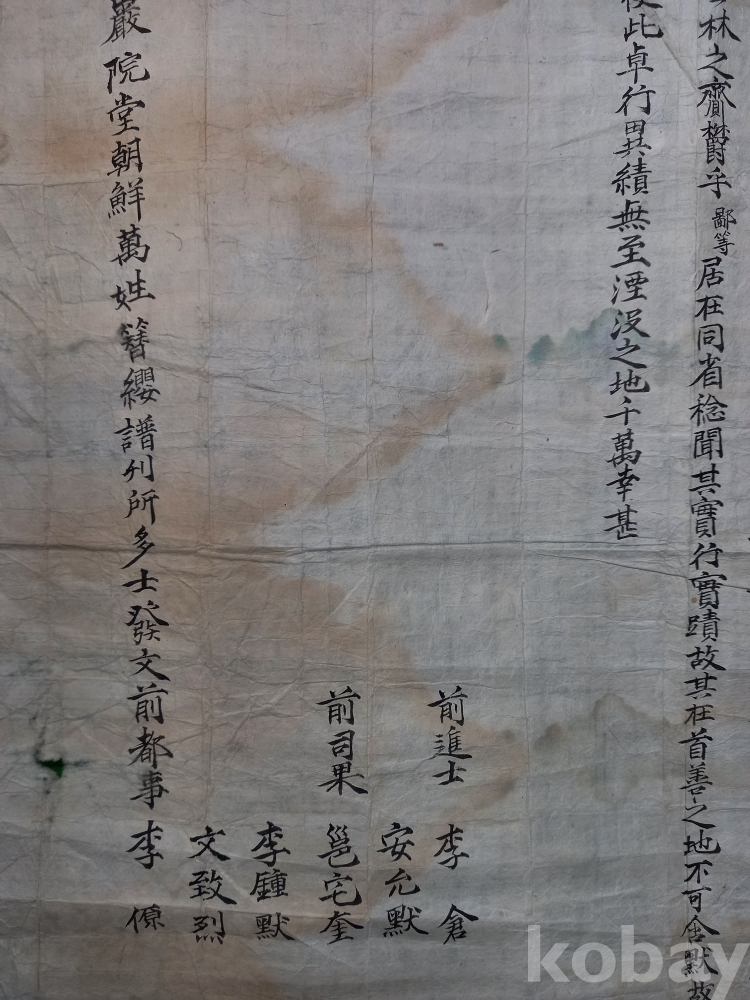 林之齎鬱乎鄙等居在同省稔聞其實行實蹟故其在首善之地不可含默故
此卓行異績無至湮没之地千萬幸甚
前進士 李 倉
安允默
前司果 邕宅奎
李鍾默
文致烈
院堂朝鮮萬姓簪纓譜刊所多士發文前都事 李
kobay